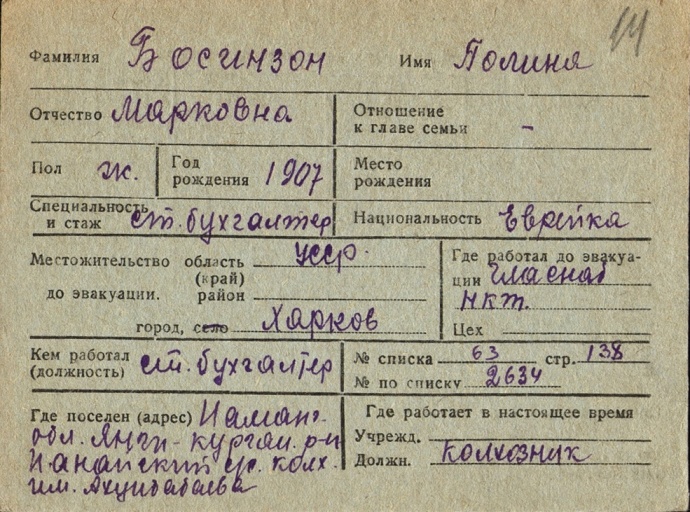 14
Фамилия Босинзон Имя Полина
Отчество Марковна Отношение
к главе семьи -
Пол ж. Год рождения 1907 Место рождения
Специальность и стаж ст. бухгалтер Национальность Еврейка
Местожительство область УССР. Где работал до эвакуа-
(край) ции Главснаб
до эвакуации. район НКТ.
город, село Харков Цех
Кем работал (должность) ст. бухгалтер № списка 63 стр. 138
№ по списку 2634
Где поселен (адрес) Наманг. Где работает в настоящее время
обл. Янги-курган. р-н Учрежд.
Нанайский ср. колх. Должн. колхозник
им. Ахунбабаева